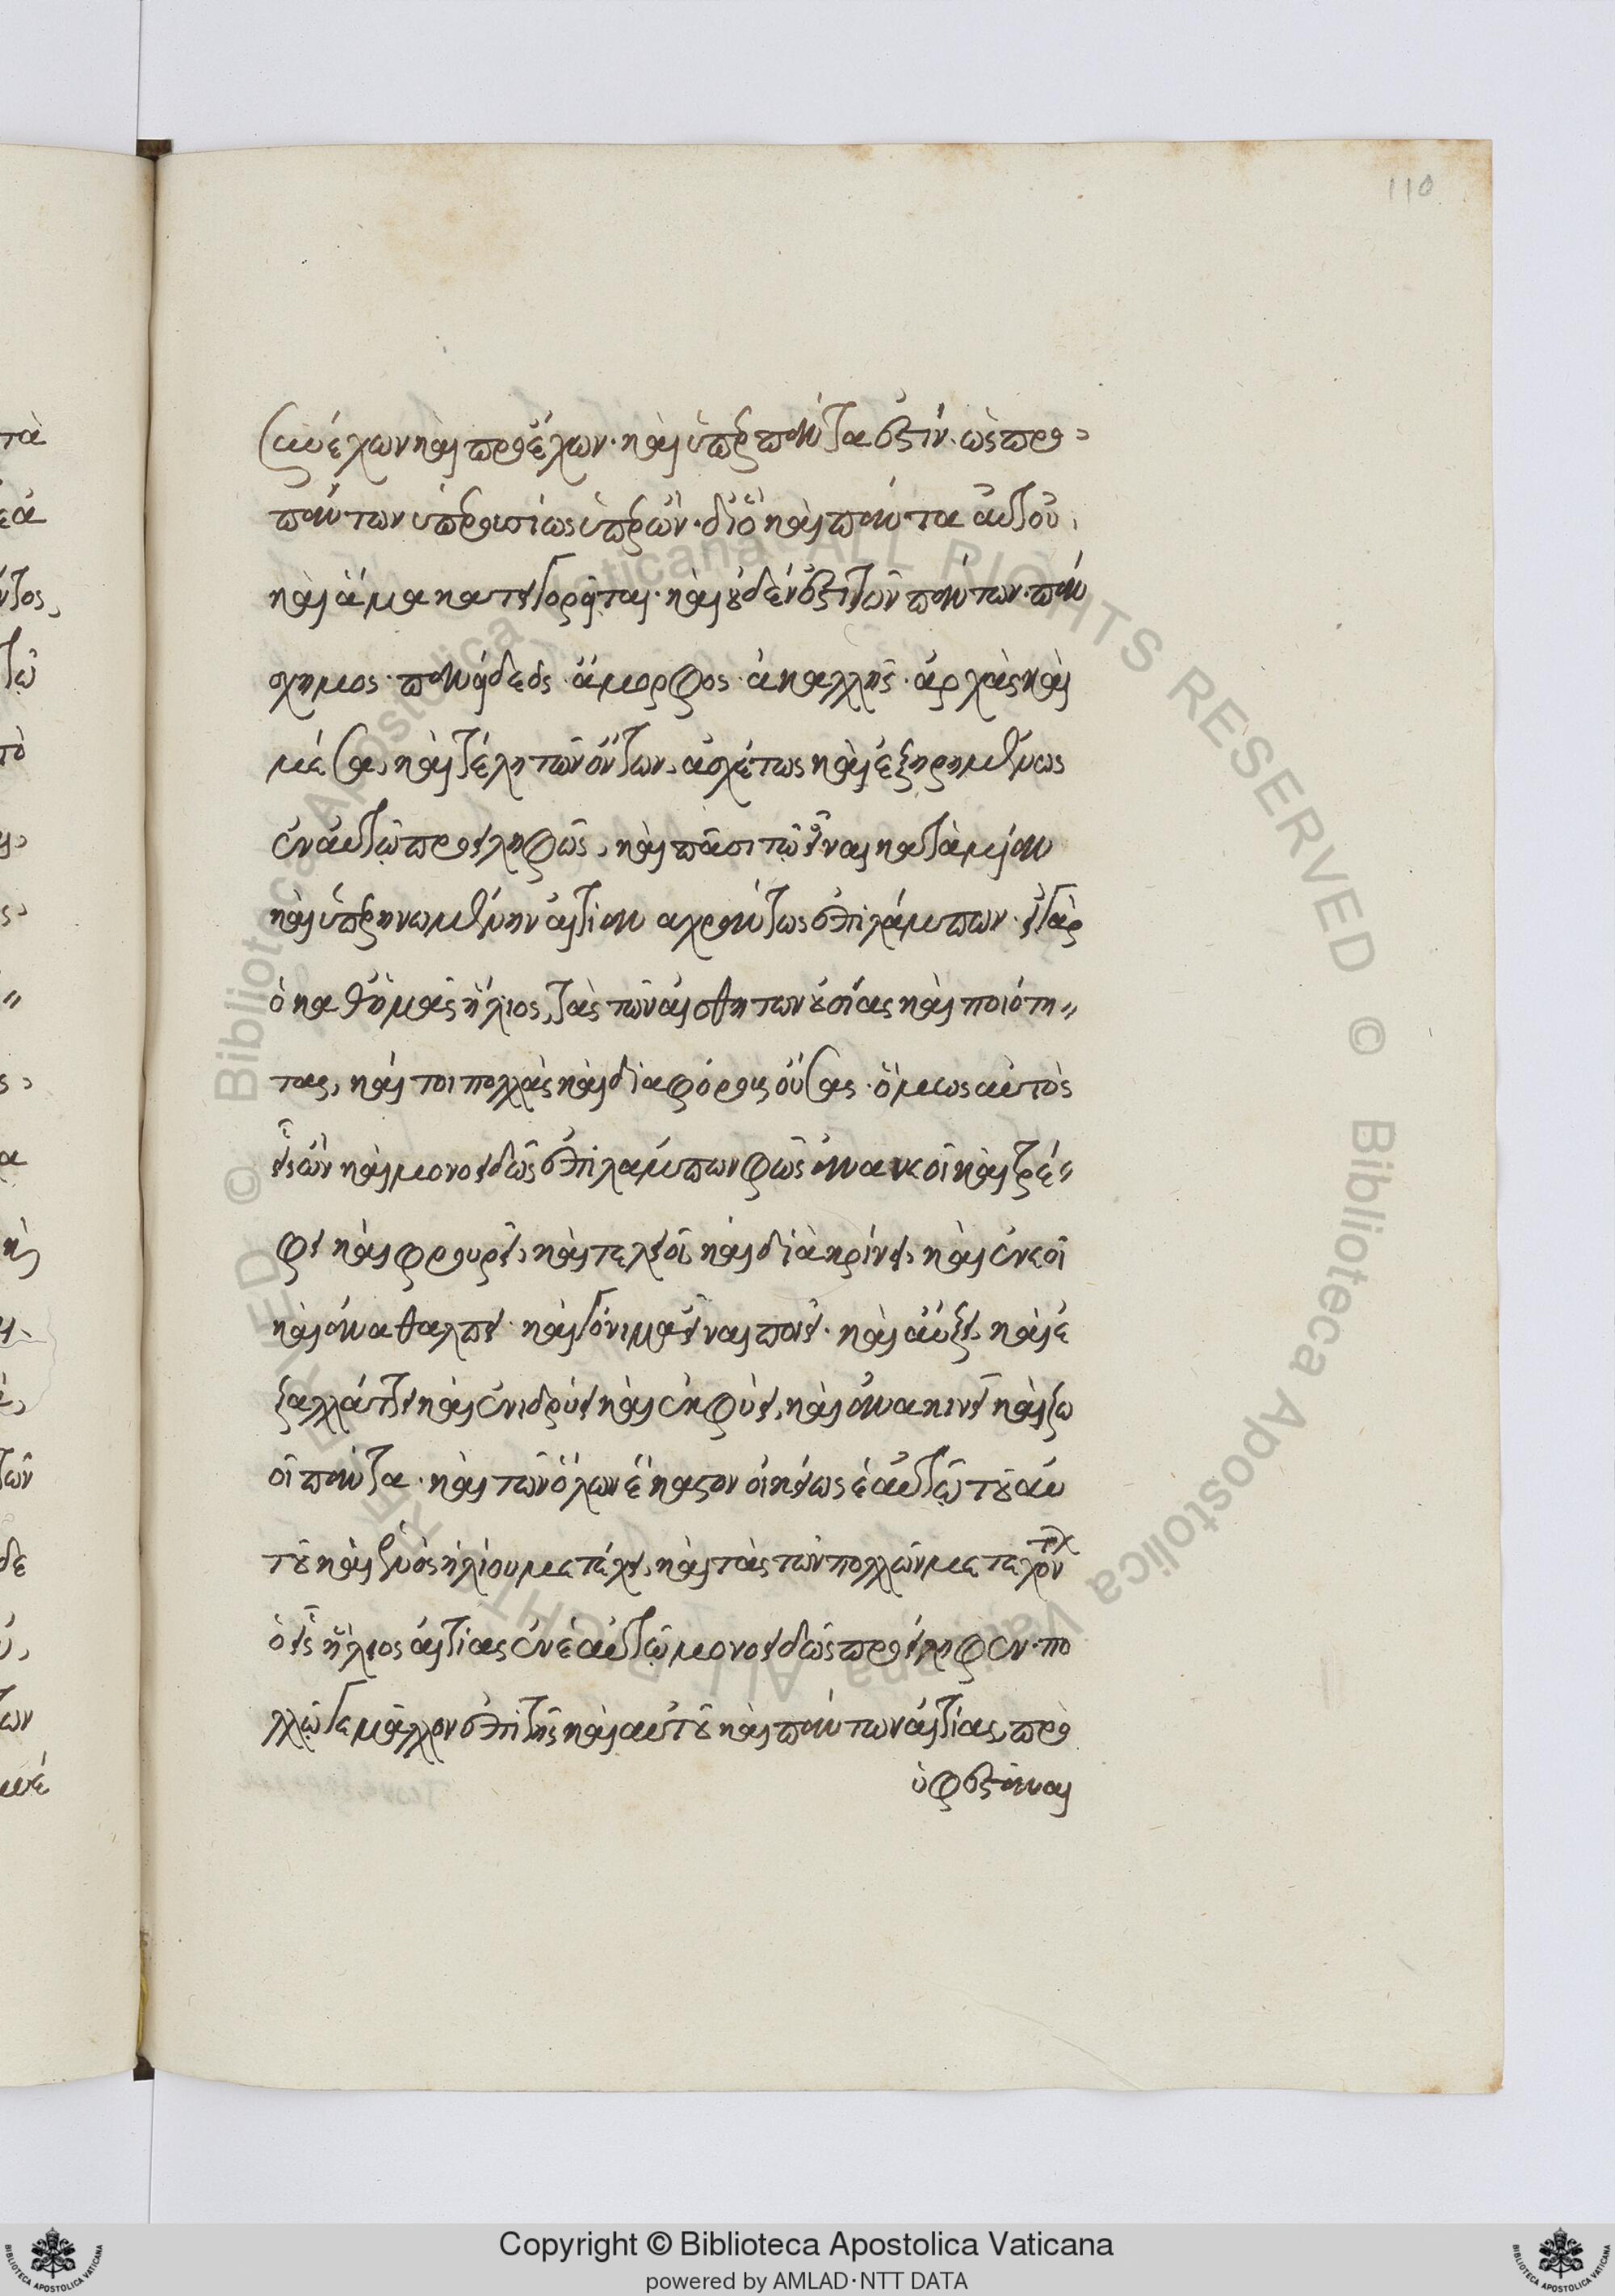 110
συνέχων καὶ προέχων· καὶ ὑπὲρ πάντα ἐστίν· ὡς πρὸ
πάντων ὑπερουσίως ὑπερὼν· διὸ καὶ πάντα αὐτοῦ,
καὶ ἅμα κατηγορεῖται· καὶ οὐδέν ἐστι τῶν πάντων· πάν
σχημος· πανείδεος· ἄμορφος· ἀκαλλὴς· ἀρχὰς καὶ
μέσα, καὶ τέλη τῶν ὄντων, ἀσχέτως καὶ ἐξηρημένως
ἐν αὐτῷ προειληφὼς, καὶ πᾶσι τῷ εἶναι κατὰ μίαν
καὶ ὑπερηνωμένην αἰτίαν ἀχράντως ἐπιλάμπων· εἰ γὰρ
ὁ καθ' ἡμᾶς ἥλιος, τὰς τῶν αἰσθητῶν οὐσίας καὶ ποιότη
τας, καί τοι πολλὰς καὶ διαφόρους οὔσας· ὅμως αὐτὸς
εἷς ὢν καὶ μονοειδῶς ἐπιλάμπων φῶς ἀνανεοῖ καὶ τρέ
φει καὶ φρουρεῖ, καὶ τελειοῖ καὶ διὰκρίνει, καὶ ἑνεοῖ
καὶ ἀναθάλπει· καὶ γόνιμα εἶναι ποιεῖ· καὶ αὔξει, καὶ ἐ
ξαλλάττει καὶ ἐνιδρύει καὶ ἐκφύει, καὶ ἀνακινεῖ καὶ ζω
οῖ πάντα· καὶ τῶν ὅλων ἕκαστον οἰκείως ἑαυτῷ τοῦ αὐ
τοῦ καὶ ἑνὸς ἡλίου μετέχει, καὶ τὰς τῶν πολλῶν μετεχόντων
ὁ εἷς ἥλιος αἰτίας ἐν ἑαυτῷ μονοειδῶς προείληφεν· πο
λλῷ γε μᾶλλον ἐπὶ τῆς καὶ αὐτοῦ καὶ πάντων αἰτίας, προ
ὑφεστάναι
Copyright © Biblioteca Apostolica Vaticana
powered by AMLAD·NTT DATA